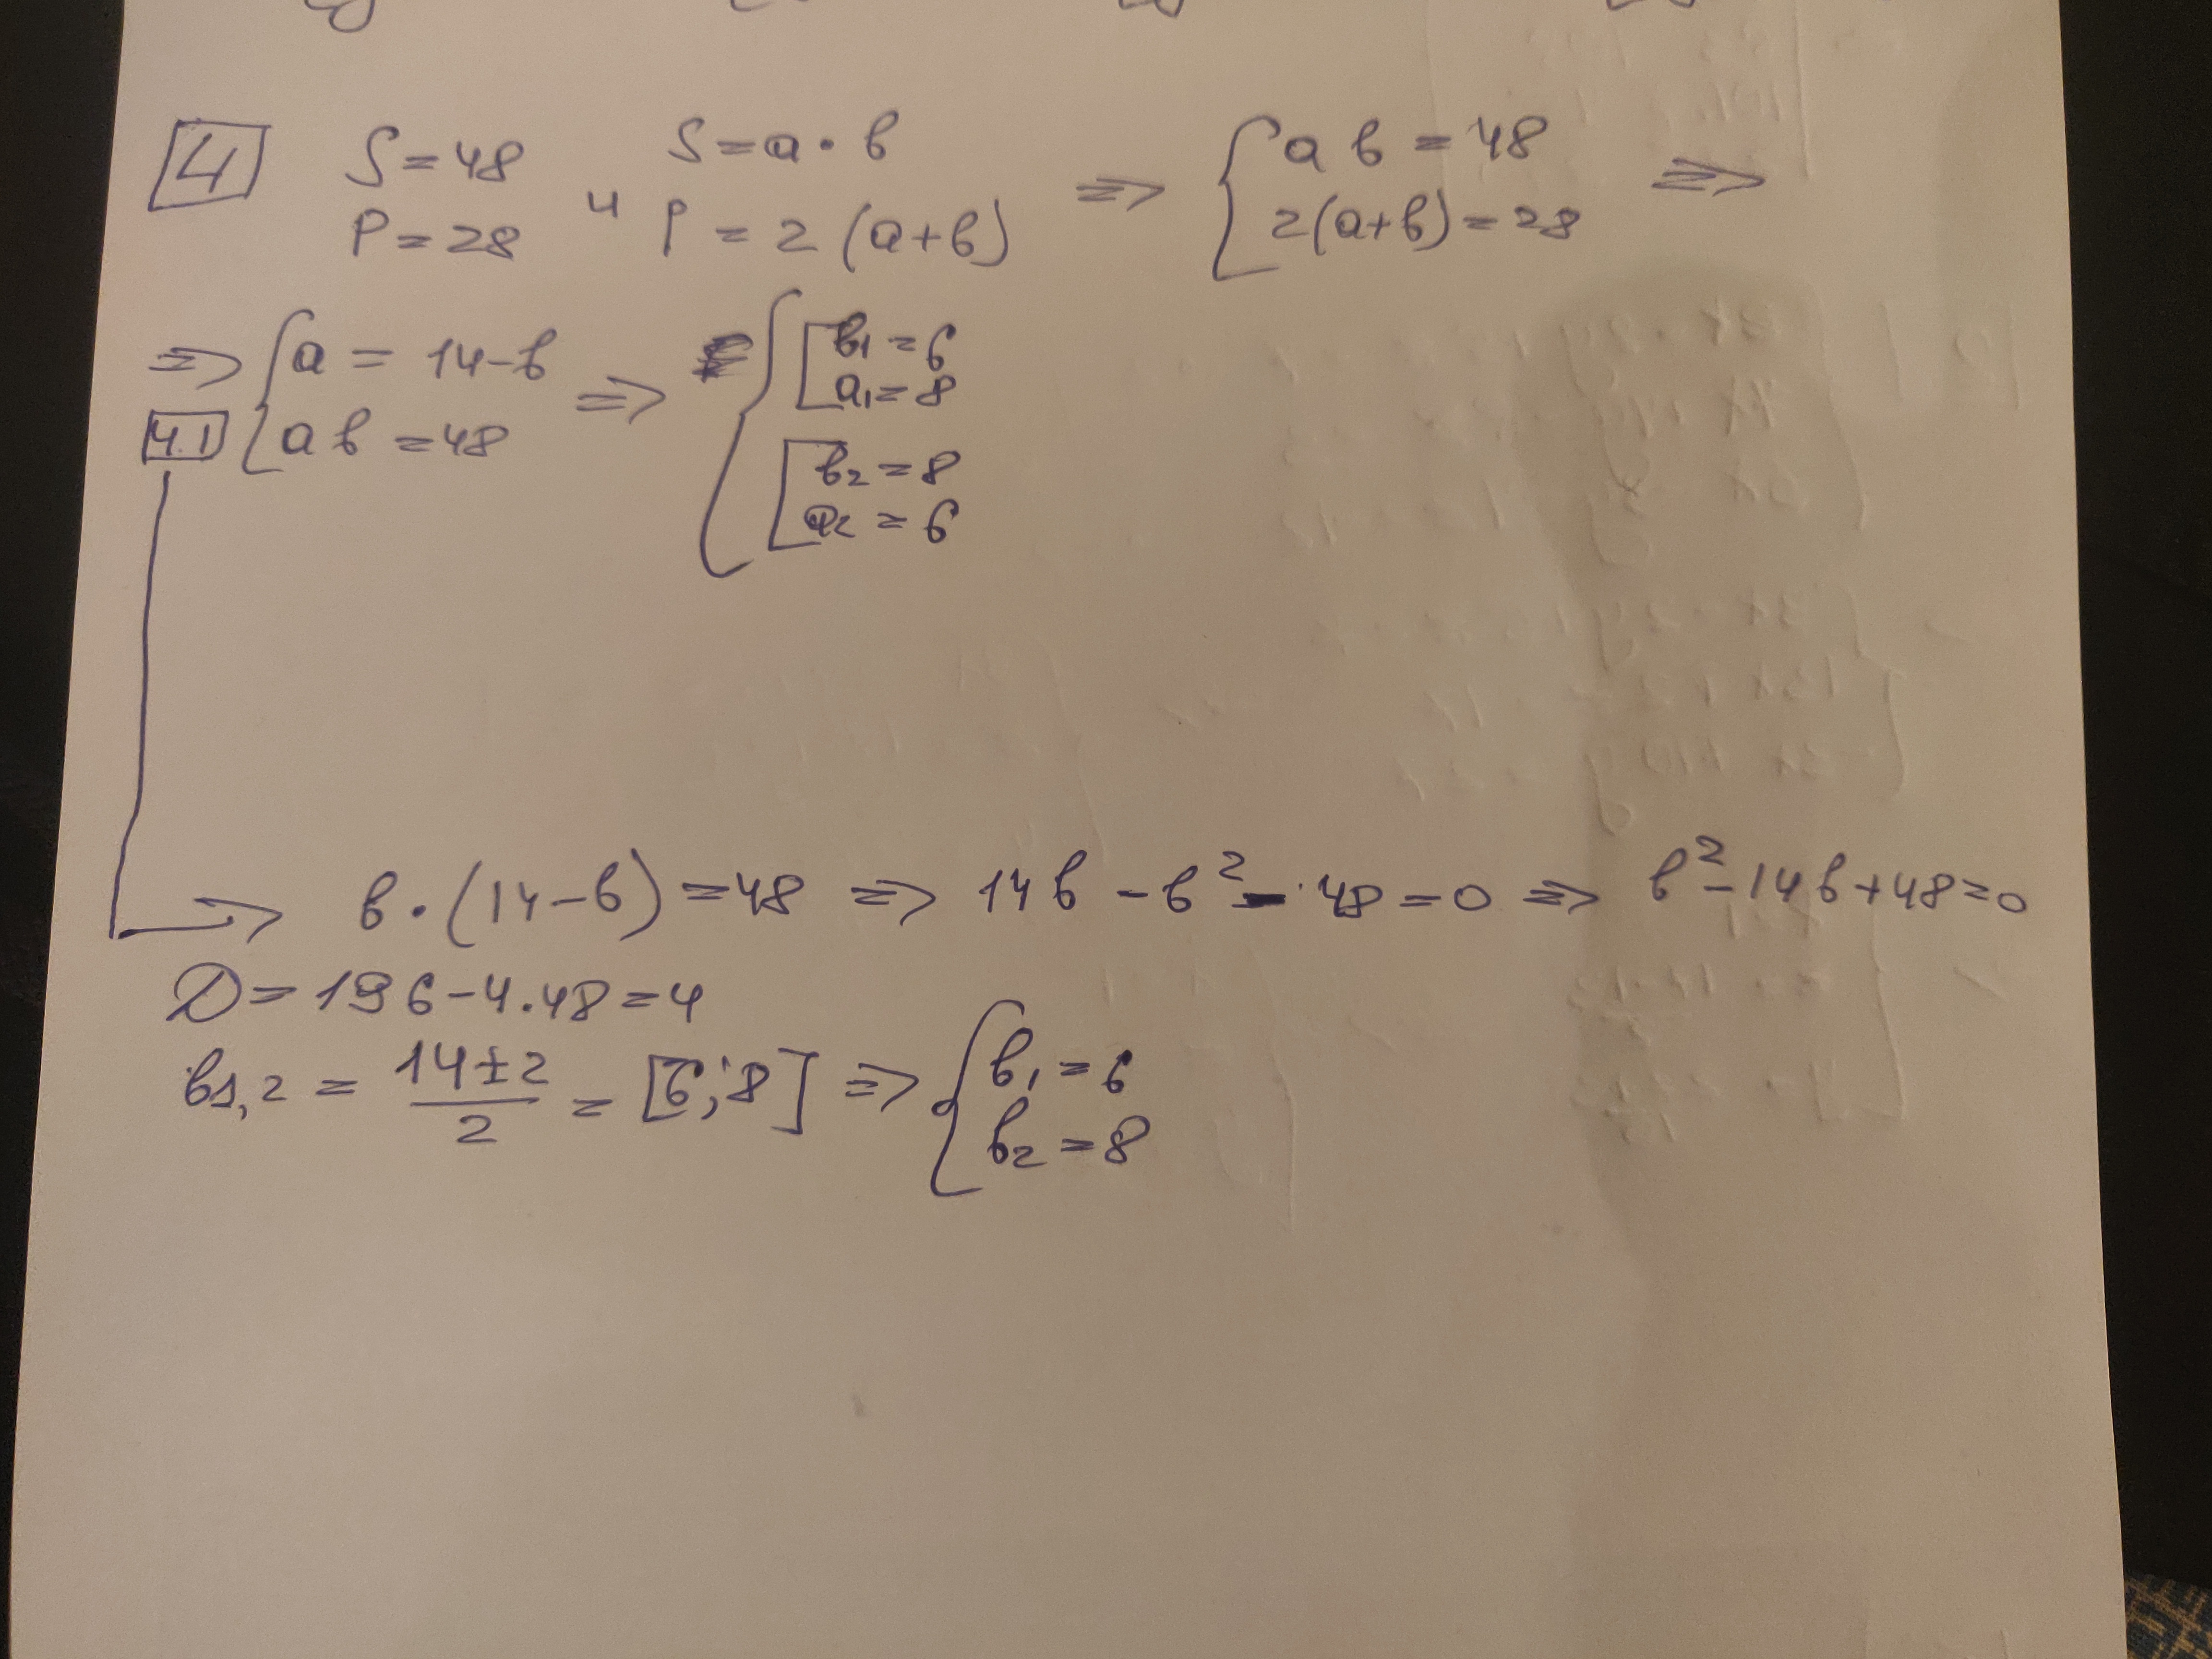 4 S=48 S=a·b {ab=48
P=28 4 P=2(a+b) ⇒ 2(a+b)=28 ⇒
⇒ {a=14-b ⇒ b₁=6
4.1 ab=48 a₁=8
b₂=8
a₂=6
→ b·(14-b)=48 ⇒ 14b-b²-48=0 ⇒ b²-14b+48=0
D=196-4·48=4
b₁,₂ = 14±2 / 2 = [6;8] ⇒ {b₁=6
b₂=8